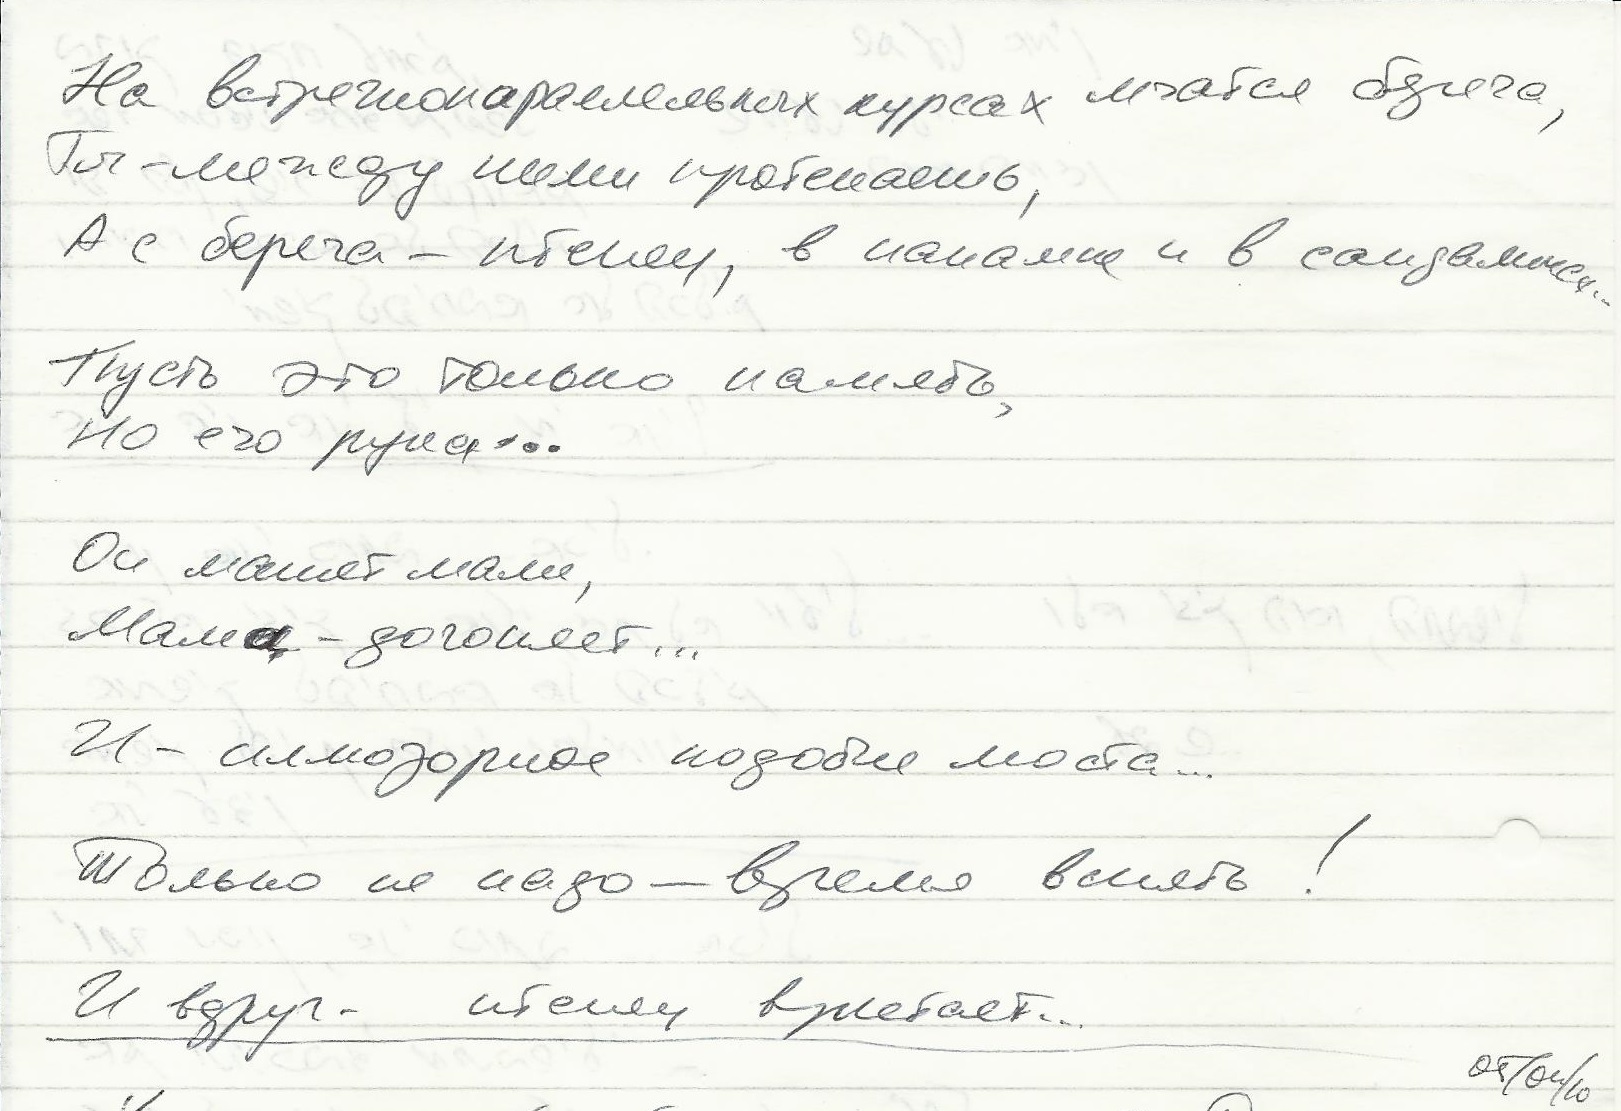 На встречнопараллельных курсах мчатся берега,
Ты - между ними протекаешь,
А с берега - птенец, в панамке и в сандаликах...
Пусть это только память,
Но его рука...
Он машет маме,
Мама - догоняет...
И - иллюзорное подобье моста...
Только не надо - время вспять!
И вдруг - птенец взлетает...